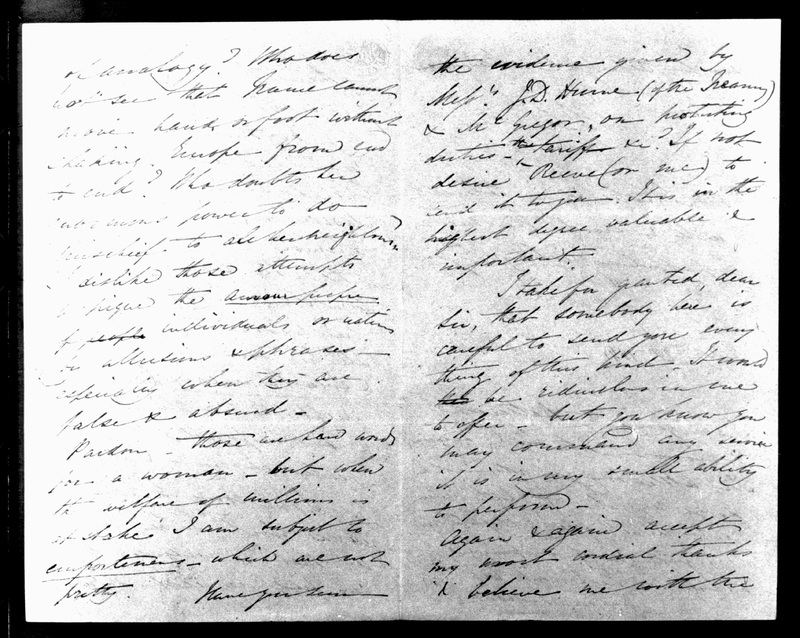 of analogy? Who does
not see that France cannot
move hand or foot without
shaking Europe from end
to end? Who doubts her
enormous power to do
mischief to all her neighbours,
I dislike those attempts
to pique the amour propre
of people individuals or nations
by allusions & phrases —
especially when they are
false & absurd —
Pardon — those are hard words
for a woman — but when
the welfare of millions is
at stake I am subject to
emportemens — which are not
pretty. Have you seen
the evidence given by
Messrs. J.D. Hume (of the Treasury)
& McGregor, on protecting
duties — the tariff &c? If not
desire Reeve (or me) to
send it to you. It is in the
highest degree valuable &
important.
I take for granted, dear
Sir, that somebody here is
careful to send you every
thing of this kind — It would
be ridiculous in me
to offer — but you know you
may command any service
it is in my small ability
to perform —
Again & again accept
my most cordial thanks
& believe me with the